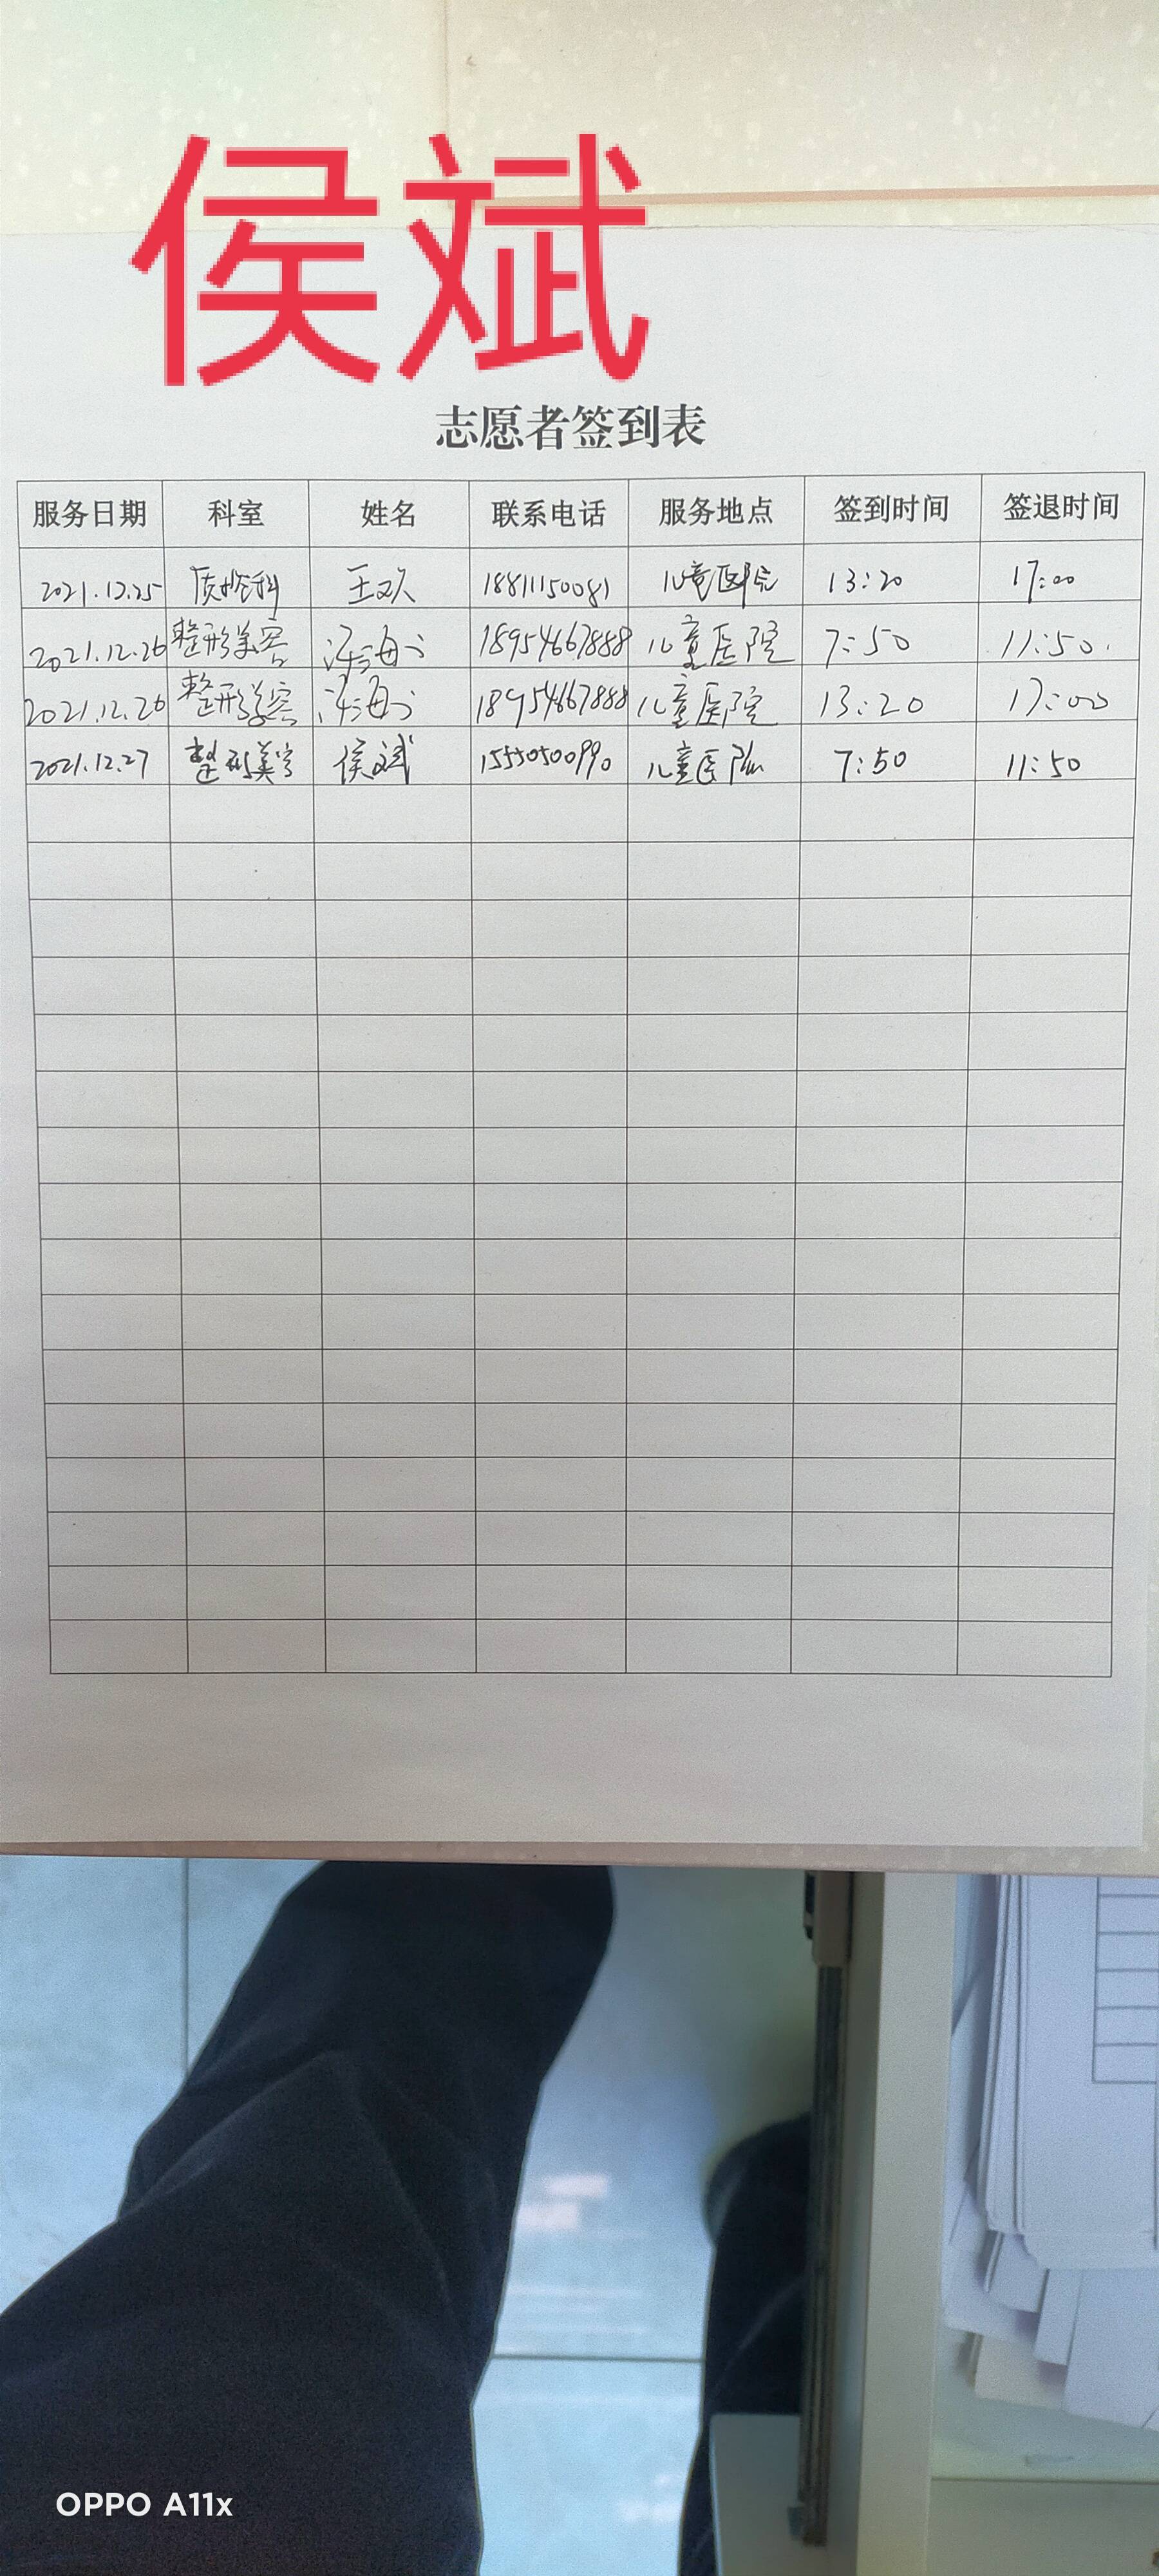 侯斌
志愿者签到表
服务日期 科室 姓名 联系电话 服务地点 签到时间 签退时间
2021.12.25 质控科 王欢 18811150081 儿童医院 13:20 17:00
2021.12.26 整形美容 18954667888 儿童医院 7:50 11:50.
2021.12.26 整形美容 18954667888 儿童医院 13:20 17:00
2021.12.27 整形美容 侯斌 15550500990 儿童医院 7:50 11:50
OPPO A11x